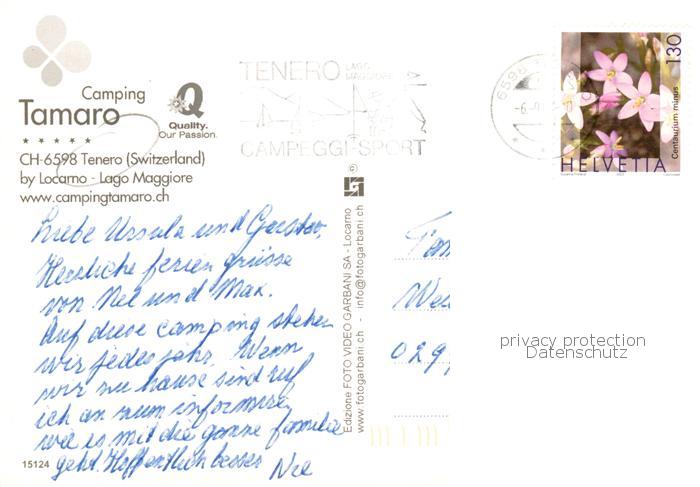 Camping
Tamaro
CH-6598 Tenero (Switzerland)
by Locarno - Lago Maggiore
www.campingtamaro.ch
Q
Quality.
Our Passion.
TENERO LAGO MAGGIORE
CAMPEGGI-SPORT
6598
130
Centaurium minus
HELVETIA
Liebe Ursula und Gustav,
Herzliche ferien grüsse
von Nel und Max.
Auf diese camping stehen
wir jedes jahr. Wenn
wir zu hause sind ruf
ich an zum informieren
wie es mit die ganze familie
geht. Hoffentlich besser Nel
15124
Edizione FOTO VIDEO GARBANI SA - Locarno
www.fotogarbani.ch - info@fotogarbani.ch
Fam
We
029
privacy protection
Datenschutz